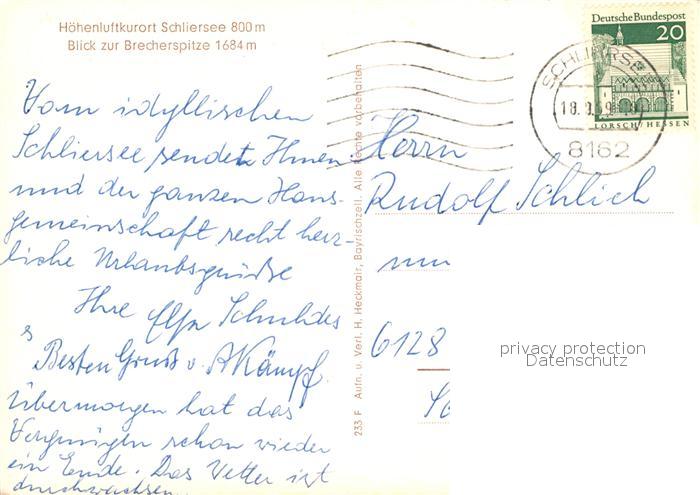 Höhenluftkurort Schliersee 800 m
Blick zur Brecherspitze 1684 m
Vom idyllischen
Schliersee sendet Ihnen
und der ganzen Haus-
gemeinschaft recht herz-
liche Urlaubsgrüße
Ihre
Besten Gruß v. A Kämpf.
Übermorgen hat das
Vergnügen schon wieder
ein Ende. Das Wetter ist
durchwachsen.
233 F Aufn. u. Verl. H. Heckmair, Bayrischzell. Alle Rechte vorbehalten
Deutsche Bundespost
20
LORSCH/HESSEN
SCHLIERSEE
8162
Herrn
Rudolf Schlich
6128
privacy protection
Datenschutz